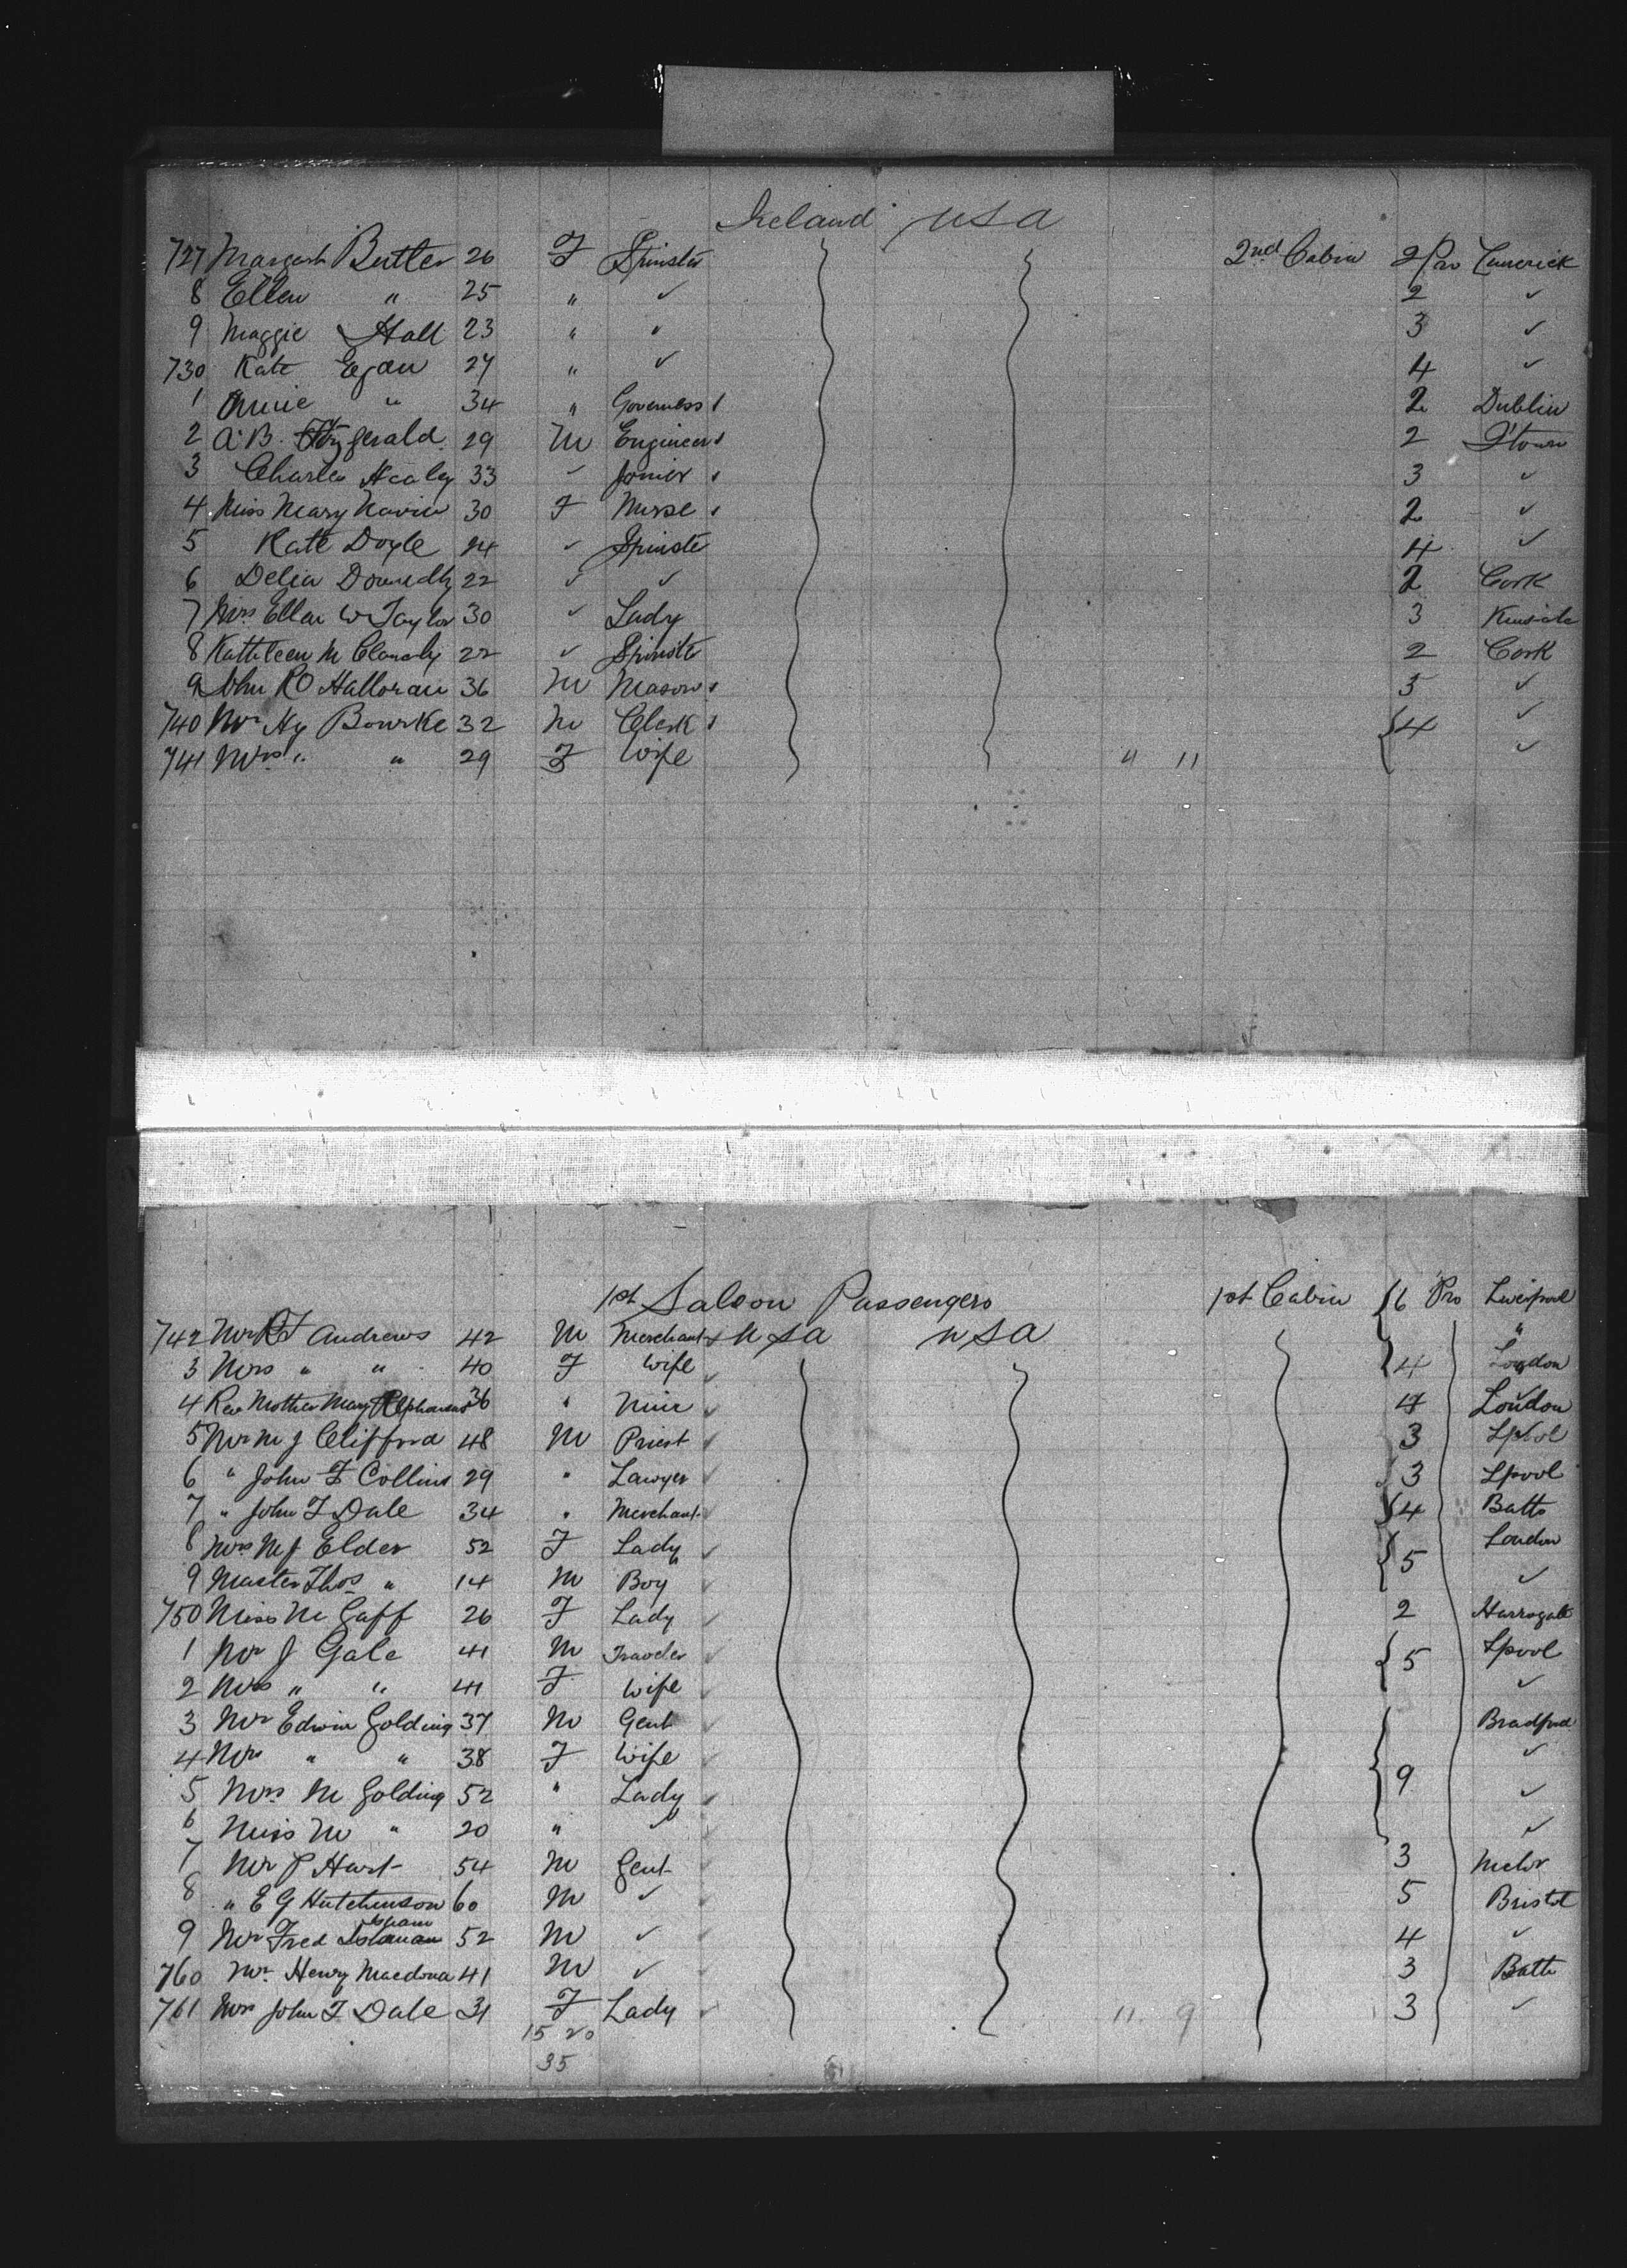 Ireland USA
727 Margart Butler 26 F Spinster 2nd Cabin 2 Pro Limerick
8 Ellen " 25 " ✓ 2 ✓
9 Maggie Hall 23 " " 3 ✓
730 Kate Egan 27 " ✓ 4 ✓
1 Annie " 34 " Governess 2 Dublin
2 A. B. Fitzgerald 29 M Engineer 2 Q'town
3 Charles Healey 33 Joiner 3 ✓
4 Miss Mary Navin 30 F Nurse 2 ✓
5 Kate Doyle 24 ✓ Spinster 4 ✓
6 Delia 22 ✓ ✓ 2 Cork
7 Mrs Ellen W Taylor 30 ✓ Lady 3 Kinsale
8 Kathleen M Clanchy 22 ✓ Spinster 2 Cork
9 John R O Halloran 36 M Mason 3 ✓
740 Mr Hy Bourke 32 M Clerk 4 ✓
741 Mrs " " 29 F Wife " 11 ✓
1st Saloon Passengers 1st Cabin 6 Pro Liverpool
742 Mr R J Andrews 42 M Merchant U S A U S A "
3 Mrs " " 40 F Wife 4 London
4 Rev Mother Mary Alphonsus 36 " Nun 4 London
5 Mr M J Clifford 48 M Priest 3 Lpool
6 " John F Collins 29 " Lawyer 3 Lpool
7 " John T Dale 34 " Merchant 4 Bath
8 Mrs M J Elder 52 F Lady 5 London
9 Master Thos " 14 M Boy ✓
750 Miss M Gaff 26 F Lady 2 Harrogate
1 Mr J Gale 41 M Traveler 5 Lpool
2 Mrs " " 41 F Wife ✓
3 Mr Edwin Golding 37 M Gent Bradford
4 Mrs " " 38 F Wife 9 ✓
5 Mrs M Golding 52 " Lady ✓
6 Miss M " 20 " ✓ ✓
7 Mr P Hart 54 M Gent 3
8 " E G Hutchinson 60 M ✓ 5 Bristol
9 Mr Fred Isham 52 M ✓ 4 ✓
760 Mr Henry Macdona 41 M ✓ 3 Bath
761 Mrs John T Dale 31 F Lady 11 9 3 ✓
15 20
35